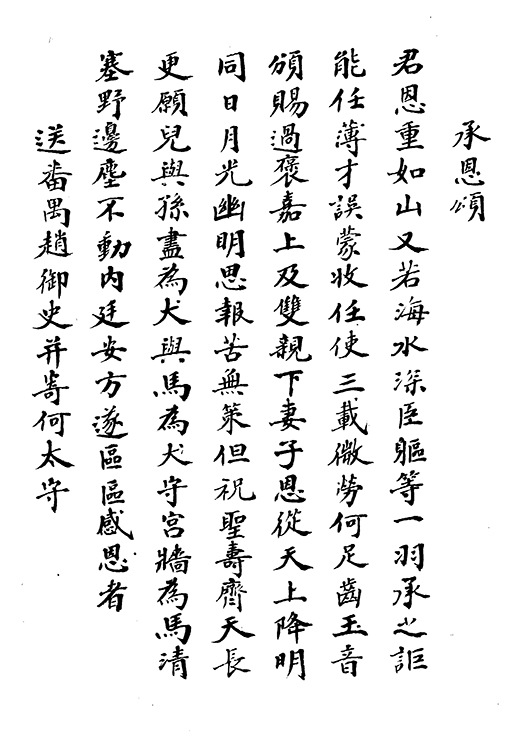 承恩頌
君恩重如山又若海水深臣軀等一羽承之詎
能任薄才誤蒙收任使三載微勞何足齒玉音
頒賜過褒嘉上及雙親下妻子恩從天上降明
同日月光幽明思報苦無策但祝聖壽齊天長
更願兒與孫盡為犬與馬為犬守宮牆為馬清
塞野邊塵不動內廷安方遂區區感恩者
送畨禺趙御史并寄何太守